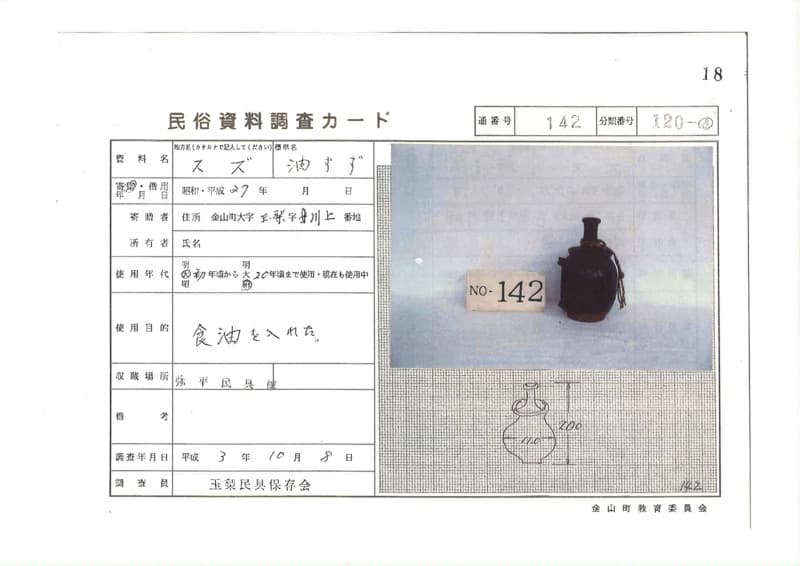 18
民俗資料調査カード
通番号 142 分類番号 120-
資料名
地方名(カタカナで記入してください) 標準名
スズ 油すず
寄贈・借用年月日 昭和・平成 27 年 月 日
寄贈者 住所 金山町大字 玉梨 字 上 番地
所有者 氏名
使用年代 明大昭 初 年頃から 明大昭 20 年頃まで使用・現在も使用中
使用目的 食油を入れた。
収蔵場所 弥平民具館
備考
調査年月日 平成 3 年 10 月 8 日
調査員 玉梨民具保存会
NO-142
200
110
142
金山町教育委員会